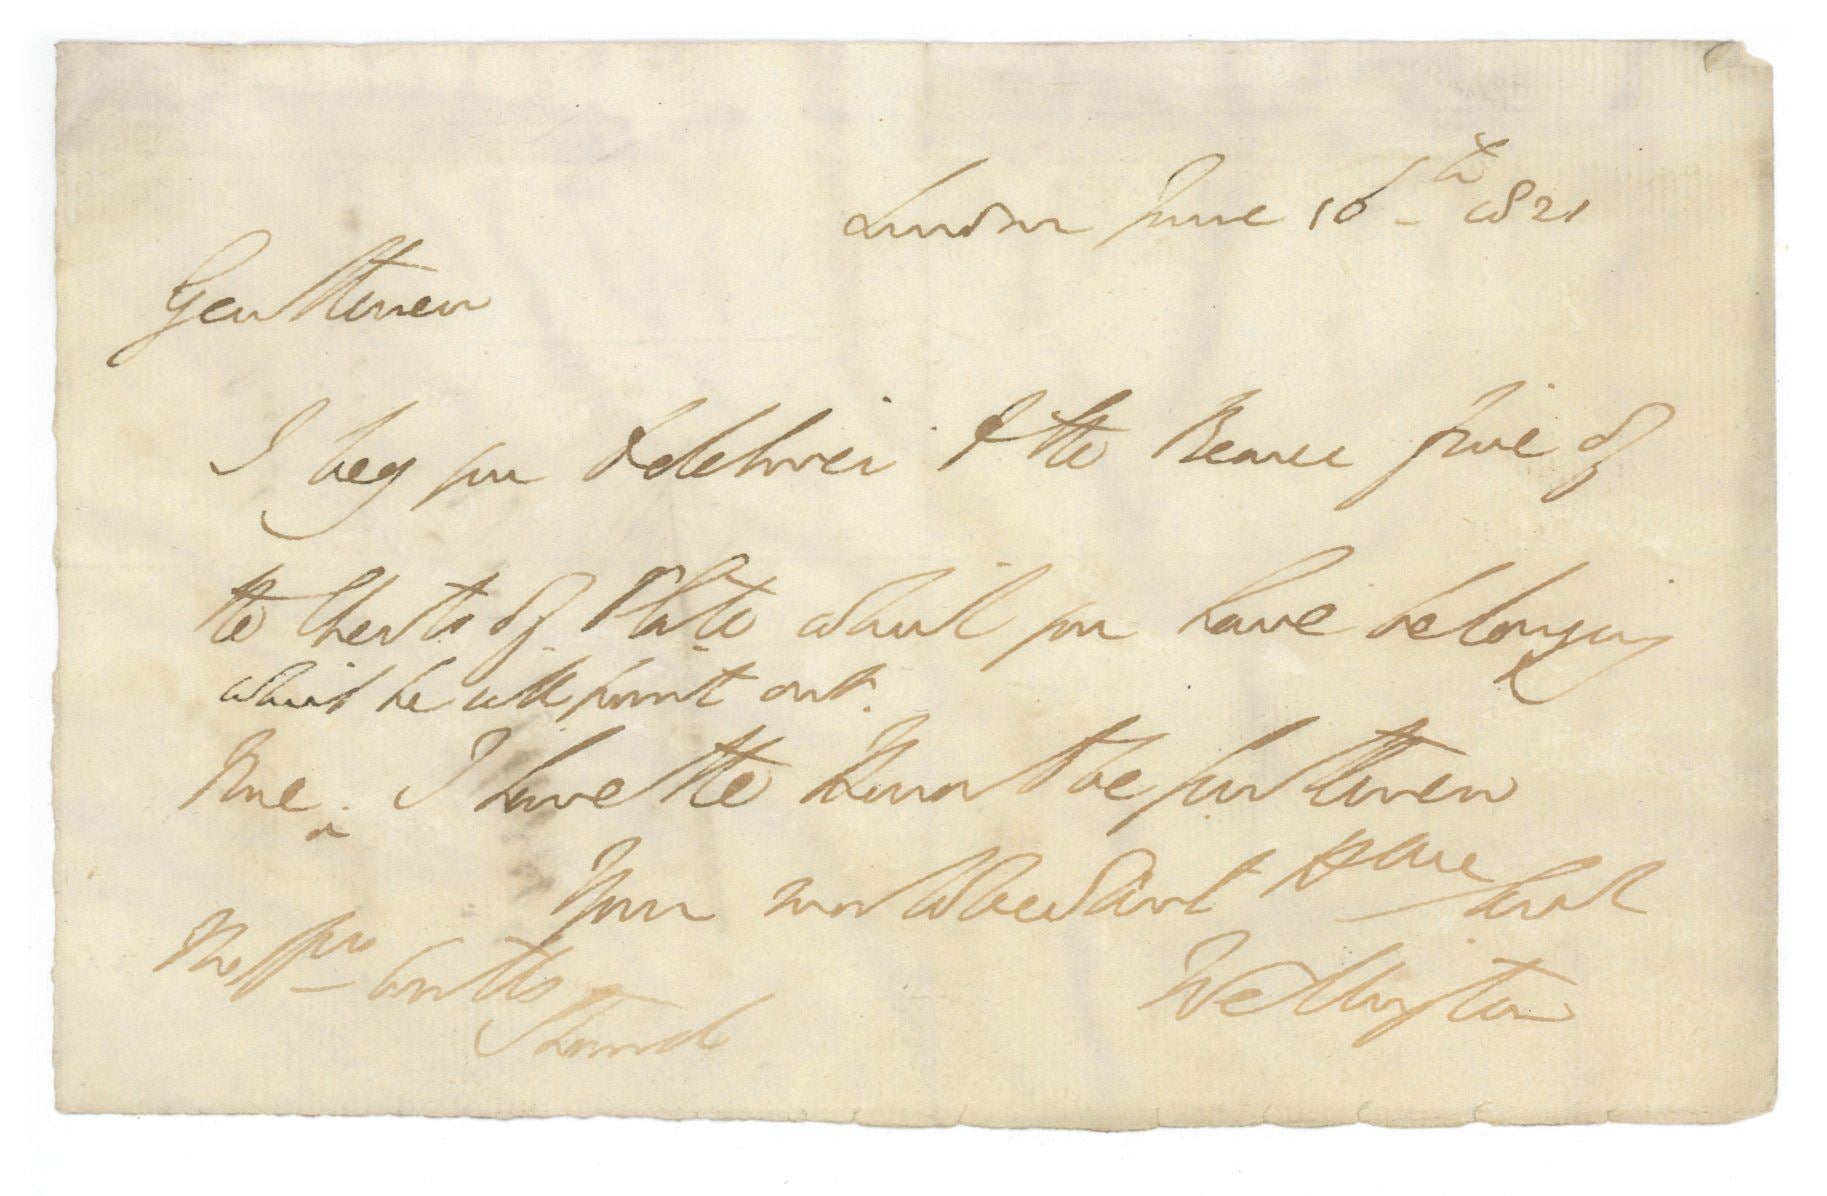 London June 16th 1821
Gentlemen
I beg you to deliver to the Bearer five of
the Chests of Plate which you have belonging
which he will point out.
to me. I have the Honor to be Gentlemen
Your most obedient Humble Servt
Wellington
Messrs Coutts
Strand